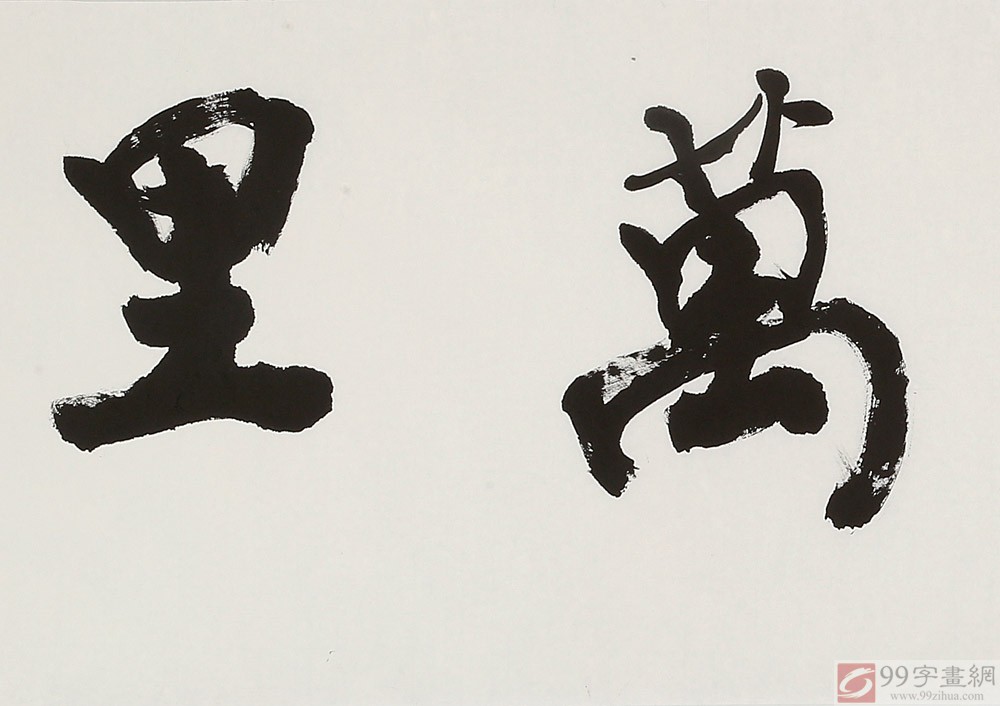 萬里
99字畫網
www.99zihua.com